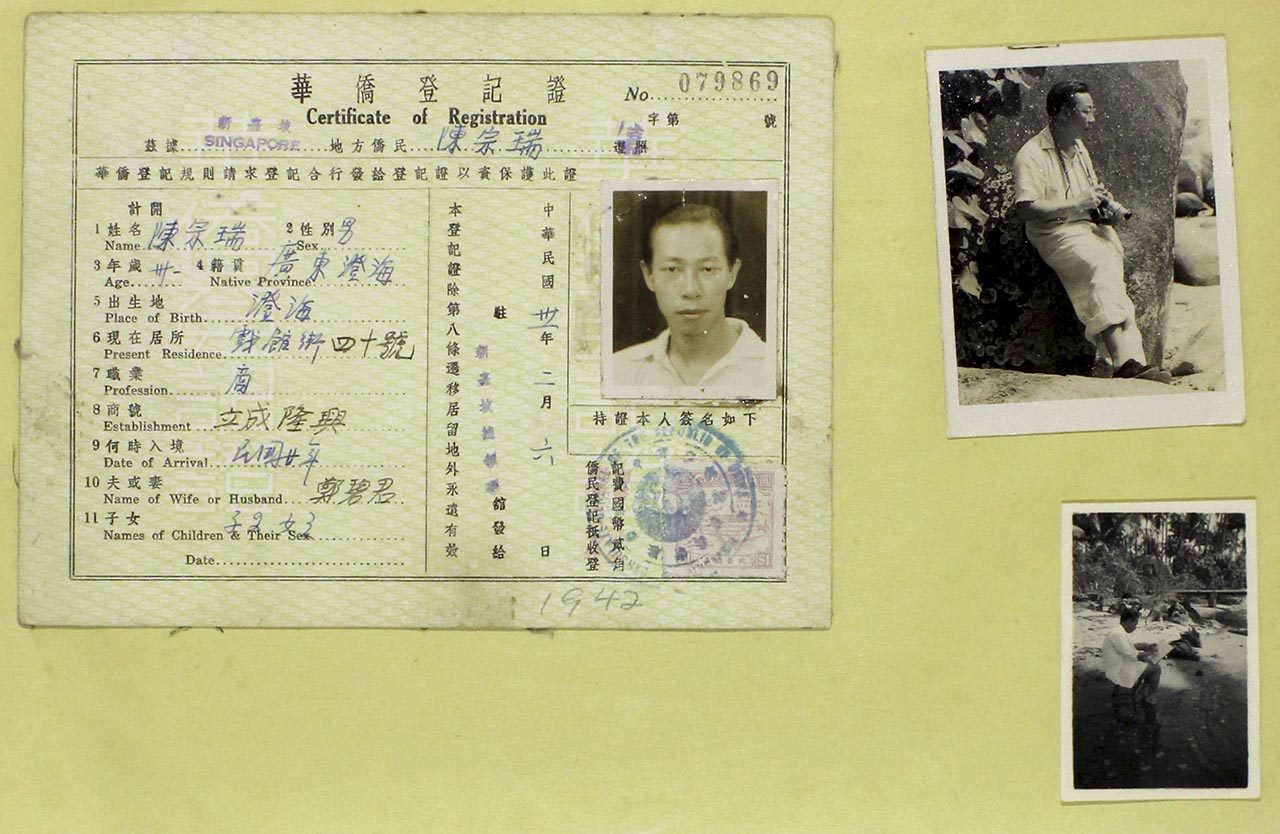 華僑登記證
No. 079869
Certificate of Registration
字第 號
茲據 新嘉坡 SINGAPORE 地方僑民 陳宗瑞 遵照
華僑登記規則請求登記合行發給登記證以資保護此證
計開
1 姓名 陳宗瑞 2 性別 男
Name Sex
3 年歲 卅一 4 籍貫 廣東澄海
Age Native Province
5 出生地 澄海
Place of Birth
6 現在居所 戲館街四十號
Present Residence
7 職業 商
Profession
8 商號 立成隆興
Establishment
9 何時入境 民國廿年
Date of Arrival
10 夫或妻 鄭碧君
Name of Wife or Husband
11 子女
Names of Children & Their Sex
Date
本登記證除第八條遷移居留地外永遠有效
駐新嘉坡總領事館發給
中華民國卅一年二月六日
持證本人簽名如下
僑民登記祇收登
記費國幣貳角
1942